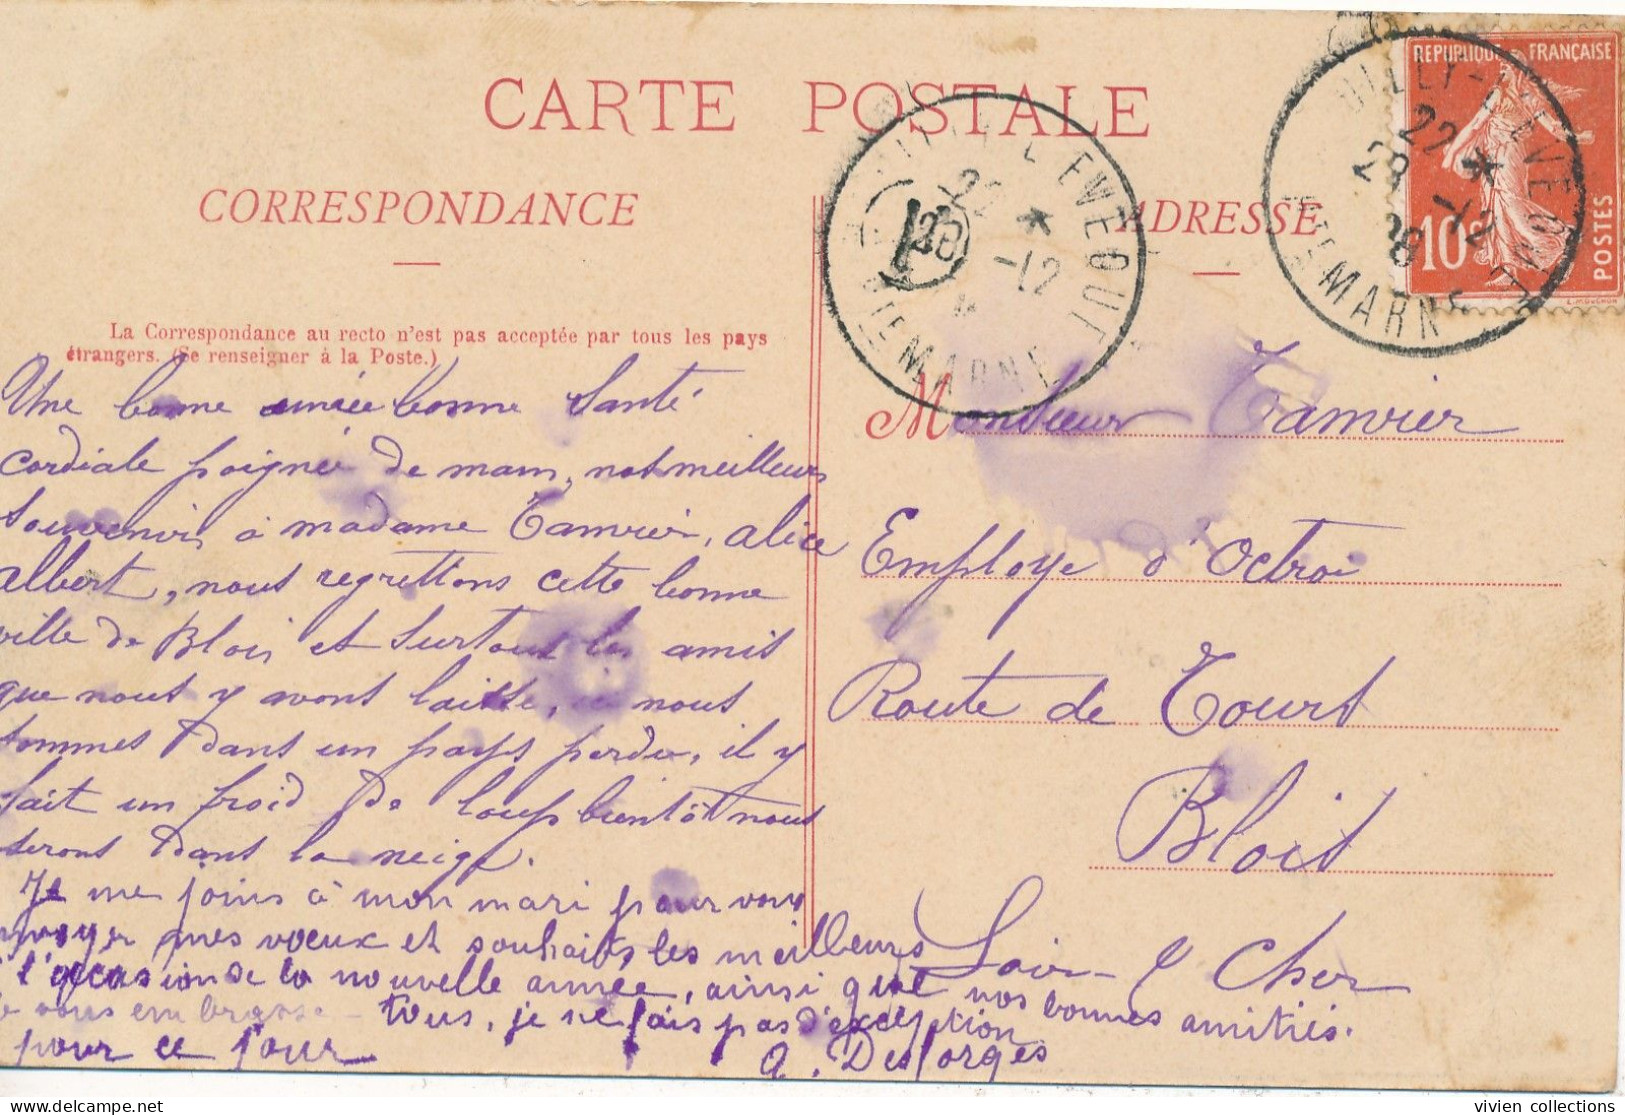 CARTE POSTALE
CORRESPONDANCE
ADRESSE
REPUBLIQUE FRANÇAISE
10c
POSTES
22 *
28 -12
HTE MARNE
L'EVEQUE
22 *
-12
HTE MARNE
La Correspondance au recto n'est pas acceptée par tous les pays
étrangers. (Se renseigner à la Poste.)
Une bonne année bonne Santé
cordiale poignée de main, nos meilleurs
souvenirs à madame Tamvier, alice
albert, nous regrettons cette bonne
ville de Blois et surtout les amis
que nous y avons laisse, ici nous
sommes dans un pays perdu, il y
fait un froid de loup bientôt nous
serons dans la neige.
Je me joins à mon mari pour vous
envoyer mes voeux et souhaits les meilleurs
l'occasion de la nouvelle année, ainsi que nos bonnes amitiés.
vous embrasse tous, je ne fais pas d'exception
pour ce jour
a. Desforges
Monsieur Tamvier
Employe d'Octroi
Route de Tours
Blois
Loir & Cher
vivien collections